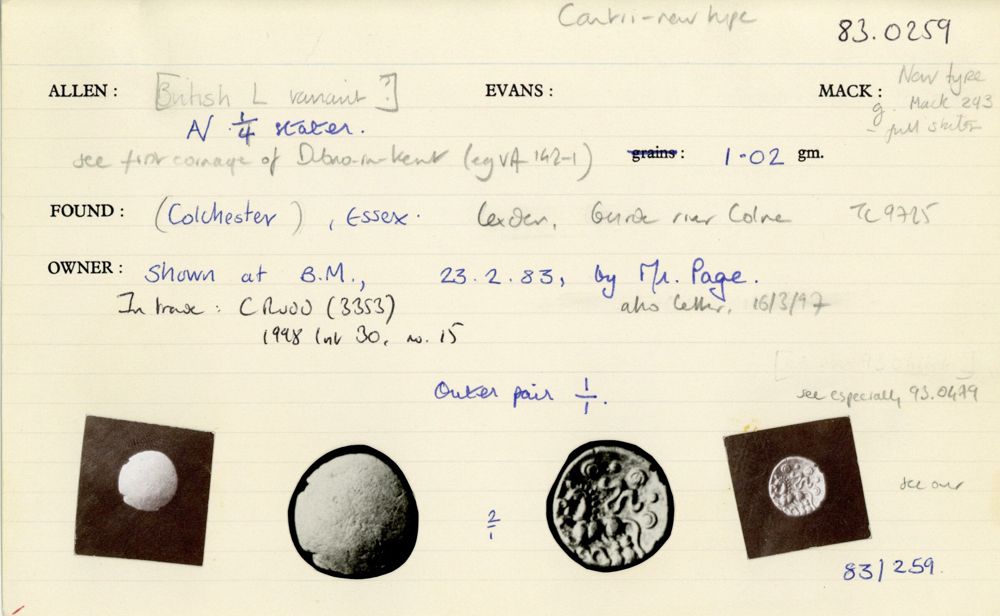 Cantii - new type
83.0259
ALLEN : [British L variant ?] EVANS : MACK : New type
cf. Mack 293
- full stater
N 1/4 stater.
see first coinage of Dubno-in-Kent (eg VA 142-1) grains : 1·02 gm.
FOUND : (Colchester) , Essex. Lexden, river Colne TL 9725
OWNER : Shown at B.M., 23.2.83, by Mr. Page.
In trade : CRWOO (3353) also letter, 16/3/97
1998 list 30, no. 15
Outer pair 1/1. see especially 93.0479
2/1
see over
83/259